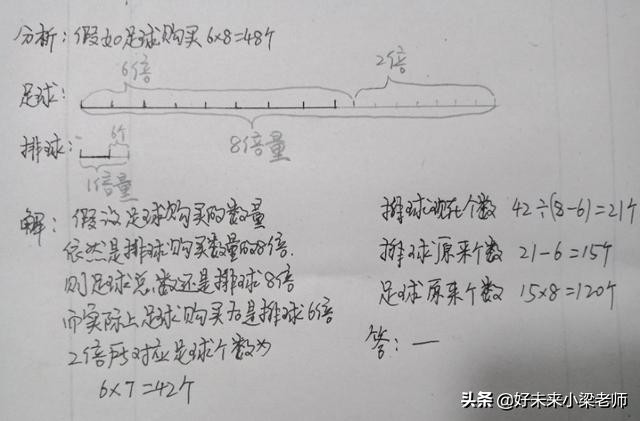 分析：假如足球购买6×8=48个
6倍
2倍
足球：
8倍量
排球：
6个
1倍量
解：假设足球购买的数量
依然是排球购买数量的8倍.
则足球总数还是排球8倍
而实际上足球购买后是排球6倍
2倍所对应足球个数为
6×7=42个
排球现在个数 42÷(8-6)=21个
排球原来个数 21-6=15个
足球原来个数 15×8=120个
答：—
头条 @好未来小梁老师